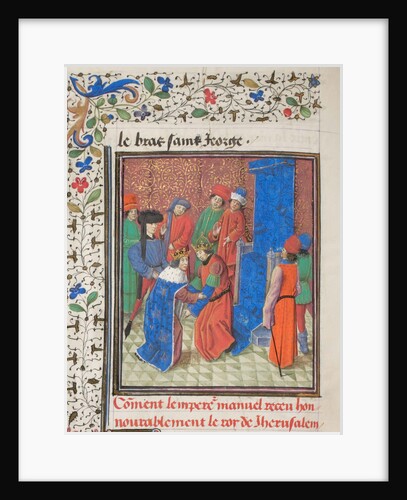 le bras saint George .
Cõment lempere² manuel receu hon
nourablement le roy de Jherusalem